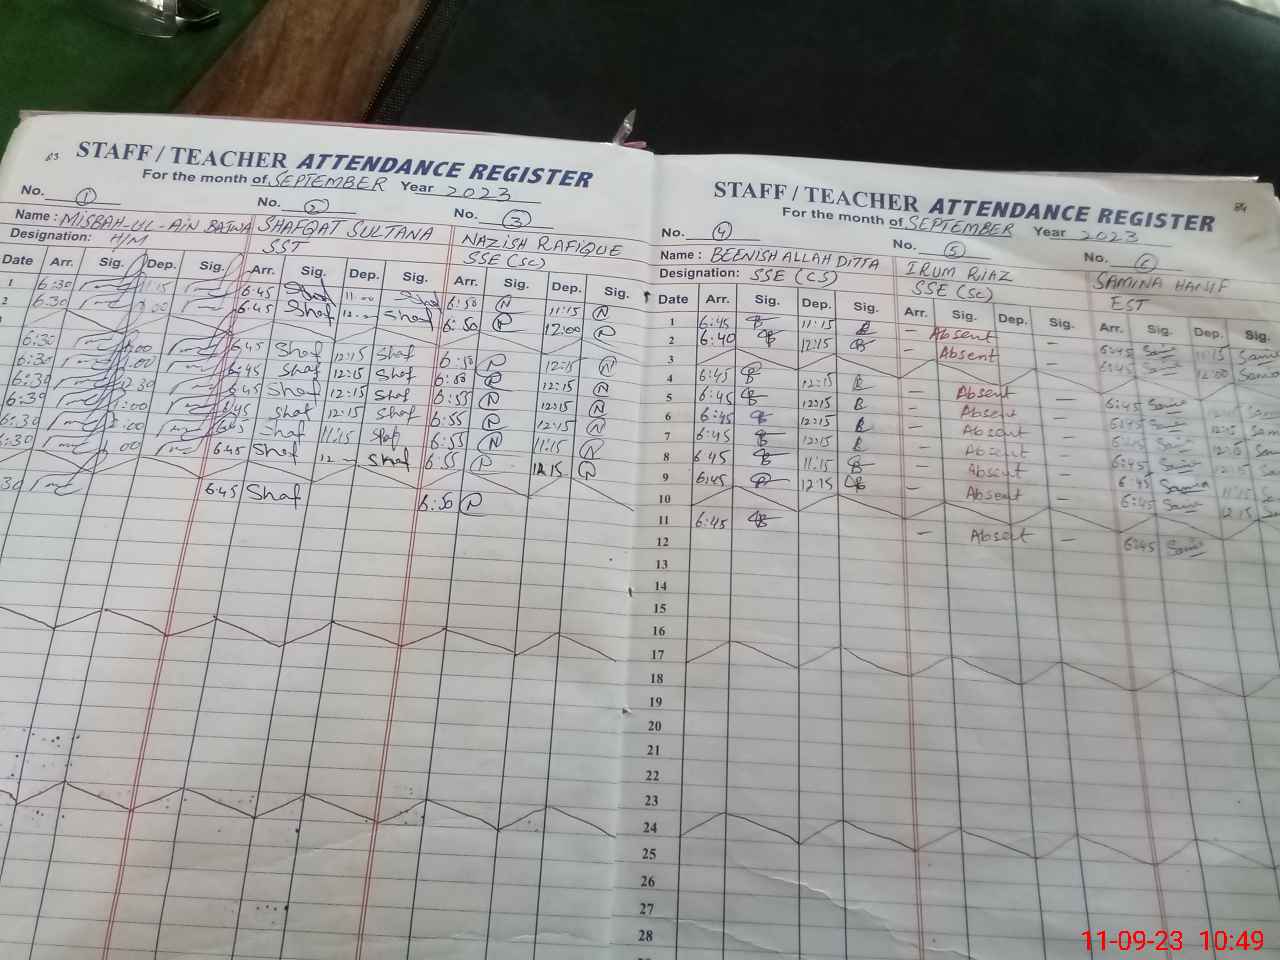 83
STAFF / TEACHER ATTENDANCE REGISTER
For the month of SEPTEMBER Year 2023
No. 1 No. 2 No. 3
Name : MISBAH-UL-AiN BATWA SHAFQAT SULTANA NAZiSH RAFIQUE
Designation: H/M SST SSE (SC)
Date Arr. Sig. Dep. Sig. Arr. Sig. Dep. Sig. Arr. Sig. Dep. Sig.
1 6:30 11:15 6:45 Shaf 11:00 Shaf 6:50 N 11:15 N
2 6:30 6:45 Shaf Shaf 6:50 12:00 N
6:30 6:45 Shaf 12:15 Shaf 6:50 N 12:15 N
6:30 6:45 Shaf 12:15 Shaf 12:15 N
6:30 6:45 Shaf 12:15 Shaf 6:55 N 12:15 N
6:30 6:45 Shaf 12:15 Shaf 6:55 N 12:15 N
6:30 6:45 Shaf 11:15 Shaf 6:55 N 11:15 N
6:30 6:45 Shaf Shaf 6:55 12:15 N
6:45 Shaf 6:50
84
STAFF / TEACHER ATTENDANCE REGISTER
For the month of SEPTEMBER Year 2023
No. 4 No. 5 No. 6
Name : BEENISH ALLAH DITTA IRUM RiAZ SAMINA HANIF
Designation: SSE (CS) SSE (SC) EST
Date Arr. Sig. Dep. Sig. Arr. Sig. Dep. Sig. Arr. Sig. Dep. Sig.
1 6:45 11:15 – Absent – 6:45 11:15
2 6:40 12:15 – Absent – 6:45 12:00
3
4 6:45 12:15 Absent – 6:45 12:15
5 6:45 12:15 Absent – 6:45 12:15
6 6:45 12:15 – Absent – 6:45 12:15
7 6:45 12:15 – Absent – 6:45 12:15
8 6:45 11:15 – Absent – 6:45 11:15
9 6:45 12:15 – Absent – 6:45 12:15
10
11 6:45 – Absent – 6:45
12
13
14
15
16
17
18
19
20
21
22
23
24
25
26
27
28
11-09-23 10:49